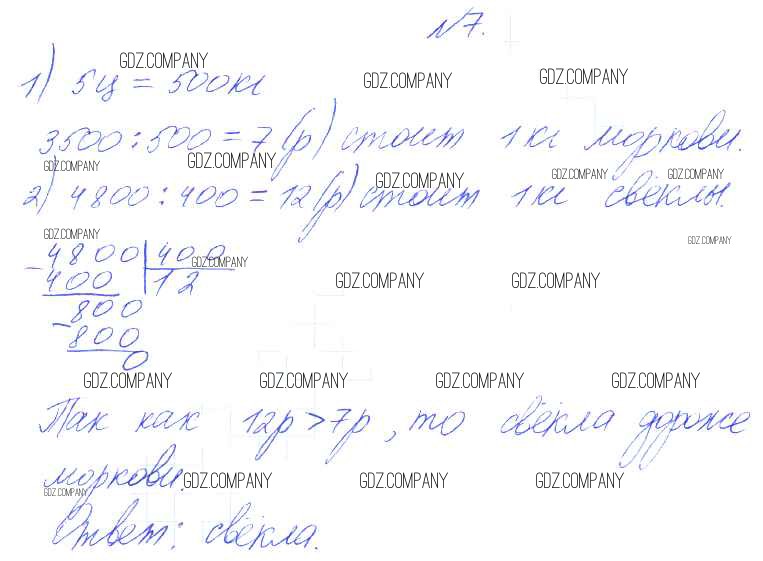 №7.
GDZ.COMPANY
GDZ.COMPANY
GDZ.COMPANY
1) 5ц = 500кг
3500 : 500 = 7 (р) стоит 1 кг моркови.
GDZ.COMPANY
GDZ.COMPANY
GDZ.COMPANY
GDZ.COMPANY
GDZ.COMPANY
2) 4800 : 400 = 12 (р) стоит 1 кг свёклы.
GDZ.COMPANY
GDZ.COMPANY
- 4800 | 400
GDZ.COMPANY
400 | 12
GDZ.COMPANY
GDZ.COMPANY
- 800
800
0
GDZ.COMPANY
GDZ.COMPANY
GDZ.COMPANY
GDZ.COMPANY
Так как 12р > 7р, то свёкла дороже
моркови.
GDZ.COMPANY
GDZ.COMPANY
GDZ.COMPANY
GDZ.COMPANY
Ответ: свёкла.